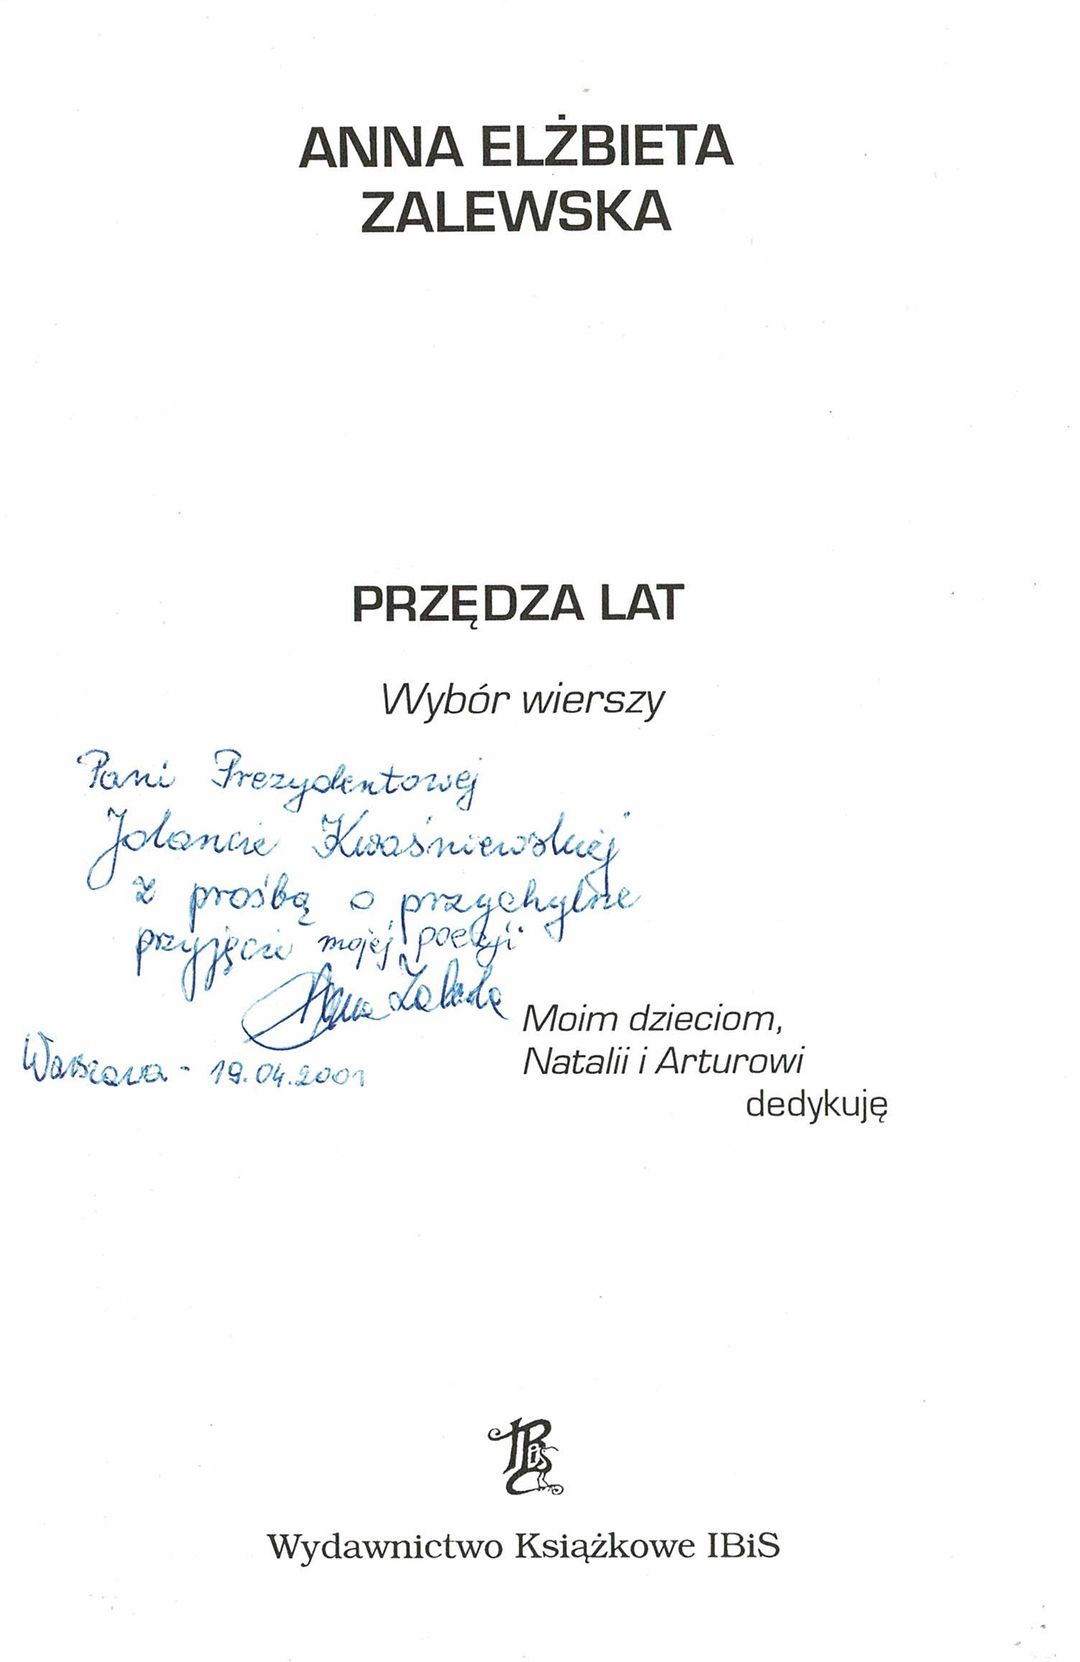 ANNA ELŻBIETA
ZALEWSKA
PRZĘDZA LAT
Wybór wierszy
Pani Prezydentowej
Jolancie Kwaśniewskiej
z prośbą o przychylne
przyjęcie mojej poezji
Anna
Warszawa - 19.04.2001
Moim dzieciom,
Natalii i Arturowi
dedykuję
IBiS
Wydawnictwo Książkowe IBiS